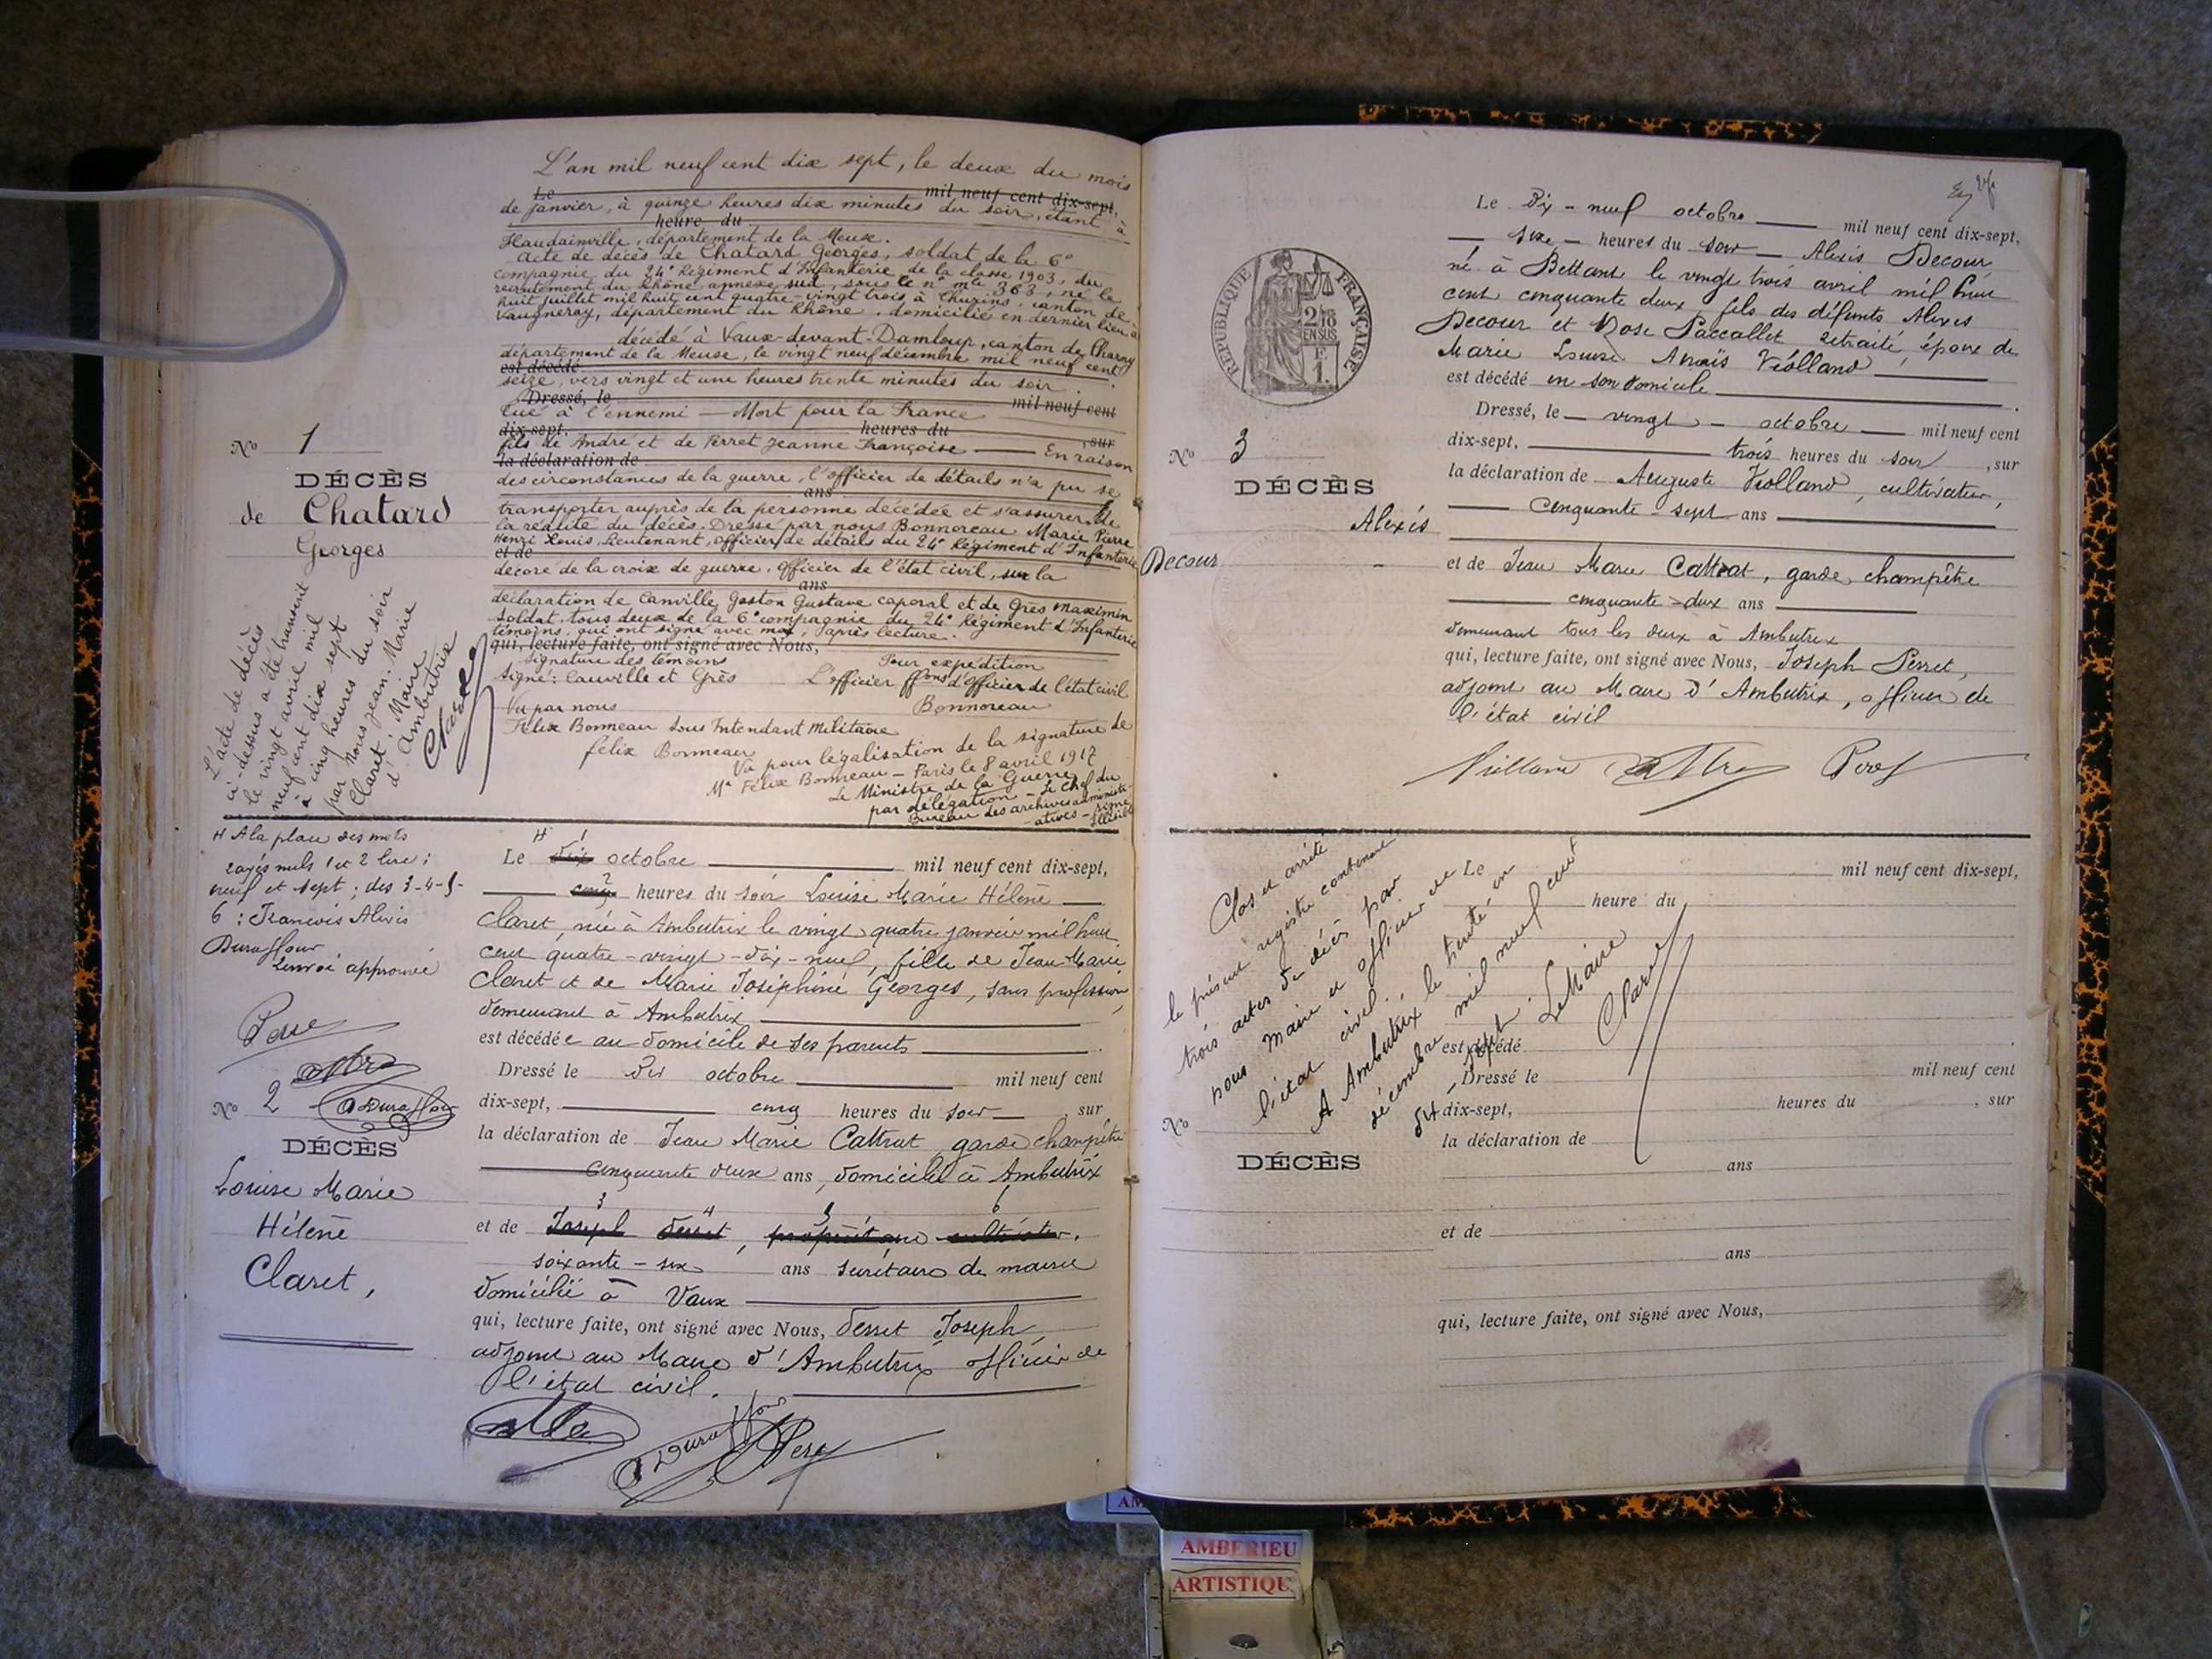 L'an mil neuf cent dix sept, le deux du mois
Le mil neuf cent dix-sept,
de janvier, à quinze heures dix minutes du soir, étant à
heure du
Haudainville, département de la Meuse.
Acte de décès de Chatard Georges, soldat de la 6e
compagnie du 24e Régiment d'Infanterie de la classe 1903, du
recrutement du Rhône annexe sud, sous le n° mle 363, né le
huit juillet mil huit cent quatre-vingt trois à Thurins, canton de
Vaugneray, département du Rhône, domicilié en dernier lieu à
décédé à Vaux-devant-Damloup, canton de Charny
département de la Meuse, le vingt neuf décembre mil neuf cent
est décédé
seize, vers vingt et une heures trente minutes du soir.
Dressé, le mil neuf cent
tué à l'ennemi — Mort pour la France
dix-sept, heures du , sur
fils de André et de Perret Jeanne Françoise — En raison
la déclaration de
des circonstances de la guerre, l'officier de détails n'a pu se
ans
transporter auprès de la personne décédée et s'assurer de
la réalité du décès. Dressé par nous Bonnoreau Marie Pierre
Henri Louis, Lieutenant, officier de détails du 24e Régiment d'Infanterie
et de
décoré de la croix de guerre. Officier de l'état civil, sur la
ans
déclaration de Canville Gaston Gustave caporal et de Grès Maximin
soldat, tous deux de la 6e compagnie du 24e Régiment d'Infanterie
témoins, qui ont signé avec moi, après lecture.
qui, lecture faite, ont signé avec Nous,
Signature des témoins Pour expédition
Signé: Canville et Grès L'officier ffons d'officier de l'état civil
Vu par nous Bonnoreau
Félix Bonneau Sous Intendant Militaire
félix Bonneau
Vu pour légalisation de la signature de
Mr Félix Bonneau — Paris le 8 avril 1917
Le Ministre de la Guerre
par délégation — Le Chef du
Bureau des archives administr-
atives — signé
illisible
N° 1
DÉCÈS
de Chatard
Georges
L'acte de décès
ci-dessus a été transcrit
le vingt avril mil
neuf cent dix sept
à cinq heures du soir
par Nous Jean-Marie
Claret, Maire
d'Ambutrix
Claret
H A la place des mots
rayés nuls 1 et 2 lire:
neuf et sept; des 3-4-5-
6: François Alexis
Duraffour
renvoi approuvé
N° 2
DÉCÈS
Louise Marie
Hélène
Claret,
H 1
Le dix octobre mil neuf cent dix-sept,
2
cinq heures du soir Louise Marie Hélène
Claret, née à Ambutrix le vingt quatre janvier mil huit
cent quatre-vingt-dix-neuf, fille de Jean Marie
Claret et de Marie Joséphine Georges, sans profession,
demeurant à Ambutrix
est décédée au domicile de ses parents.
Dressé le dix octobre mil neuf cent
dix-sept, cinq heures du soir, sur
la déclaration de Jean Marie Cattrat garde champêtre
cinquante deux ans, domicilié à Ambutrix
3 4 5 6
et de Joseph Perret, propriétaire cultivateur,
soixante-six ans secrétaire de mairie
domicilié à Vaux
qui, lecture faite, ont signé avec Nous, Perret Joseph,
adjoint au Maire d'Ambutrix officier de
l'état civil.
Duraffour
RÉPUBLIQUE FRANÇAISE
2/10
EN SUS
F.
1.
Le Dix-neuf octobre mil neuf cent dix-sept,
six heures du soir Alexis Decour
né à Bettant le vingt trois avril mil huit
cent cinquante deux, fils des défunts Alexis
Decour et Rose Paccallet retraité, époux de
Marie Louise Anaïs Violland
est décédé en son domicile.
Dressé, le vingt octobre mil neuf cent
dix-sept, trois heures du soir, sur
la déclaration de Auguste Violland, cultivateur,
cinquante-sept ans
et de Jean Marie Cattrat, garde champêtre
cinquante-deux ans
demeurant tous les deux à Ambutrix
qui, lecture faite, ont signé avec Nous, Joseph Perret,
adjoint au Maire d'Ambutrix, officier de
l'état civil
N° 3
DÉCÈS
Alexis
Decour
Clos et arrêté
le présent registre contenant
trois actes de décès par
nous Maire et officier de
l'état civil
A Ambutrix le trente un
décembre mil neuf cent
dix-sept. Le Maire
Claret
Le mil neuf cent dix-sept,
heure du
est décédé
Dressé le mil neuf cent
dix-sept, heures du , sur
la déclaration de
ans
et de
ans
qui, lecture faite, ont signé avec Nous,
N°
DÉCÈS
AMBERIEU
ARTISTIQU